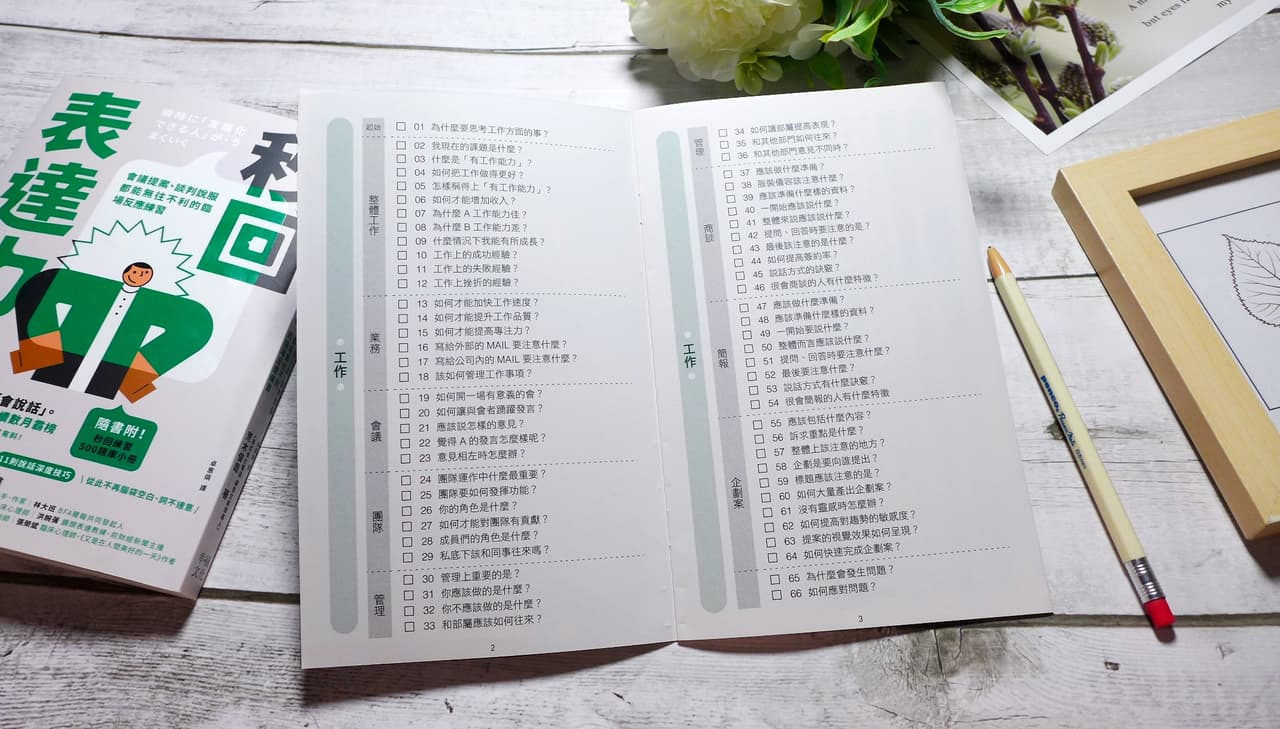 秒回
表達力
瞬時に「言語化
できる人」が、う
まくいく
會議提案、談判說服
都能無往不利的臨
場反應練習
會說話」。
隨書附!
秒回練習
500題庫小冊
11則說話深度技巧
從此不再腦袋空白、詞不達意
卓惠娟 譯
林大班 BFA簡報共同發起人
工作
起始
01 為什麼要思考工作方面的事?
整體工作
02 我現在的課題是什麼?
03 什麼是「有工作能力」?
04 如何把工作做得更好?
05 怎樣稱得上「有工作能力」?
06 如何才能增加收入?
07 為什麼 A 工作能力佳?
08 為什麼 B 工作能力差?
09 什麼情況下我能有所成長?
10 工作上的成功經驗?
11 工作上的失敗經驗?
12 工作上挫折的經驗?
業務
13 如何才能加快工作速度?
14 如何才能提升工作品質?
15 如何才能提高專注力?
16 寫給外部的 MAIL 要注意什麼?
17 寫給公司內的 MAIL 要注意什麼?
18 該如何管理工作事項?
會議
19 如何開一場有意義的會?
20 如何讓與會者踴躍發言?
21 應該說怎樣的意見?
22 覺得 A 的發言怎麼樣呢?
23 意見相左時怎麼辦?
團隊
24 團隊運作中什麼最重要?
25 團隊要如何發揮功能?
26 你的角色是什麼?
27 如何才能對團隊有貢獻?
28 成員們的角色是什麼?
29 私底下該和同事往來嗎?
管理
30 管理上重要的是?
31 你應該做的是什麼?
32 你不應該做的是什麼?
33 和部屬應該如何往來?
2
工作
管理
34 如何讓部屬提高表現?
35 和其他部門如何往來?
36 和其他部門意見不同時?
商談
37 應該做什麼準備?
38 服裝儀容該注意什麼?
39 應該準備什麼樣的資料?
40 一開始應該說什麼?
41 整體來說應該說什麼?
42 提問、回答時要注意的是?
43 最後該注意的是什麼?
44 如何提高簽約率?
45 說話方式的訣竅?
46 很會商談的人有什麼特徵?
簡報
47 應該做什麼準備?
48 應該準備什麼樣的資料?
49 一開始要說什麼?
50 整體而言應該說什麼?
51 提問、回答時要注意什麼?
52 最後要注意什麼?
53 說話方式有什麼訣竅?
54 很會簡報的人有什麼特徵
企劃案
55 應該包括什麼內容?
56 訴求重點是什麼?
57 整體上該注意的地方?
58 企劃是要向誰提出?
59 標題應該注意的是?
60 如何大量產出企劃案?
61 沒有靈感時怎麼辦?
62 如何提高對趨勢的敏感度?
63 提案的視覺效果如何呈現?
64 如何快速完成企劃案?
65 為什麼會發生問題?
66 如何應對問題?
3
but eyes